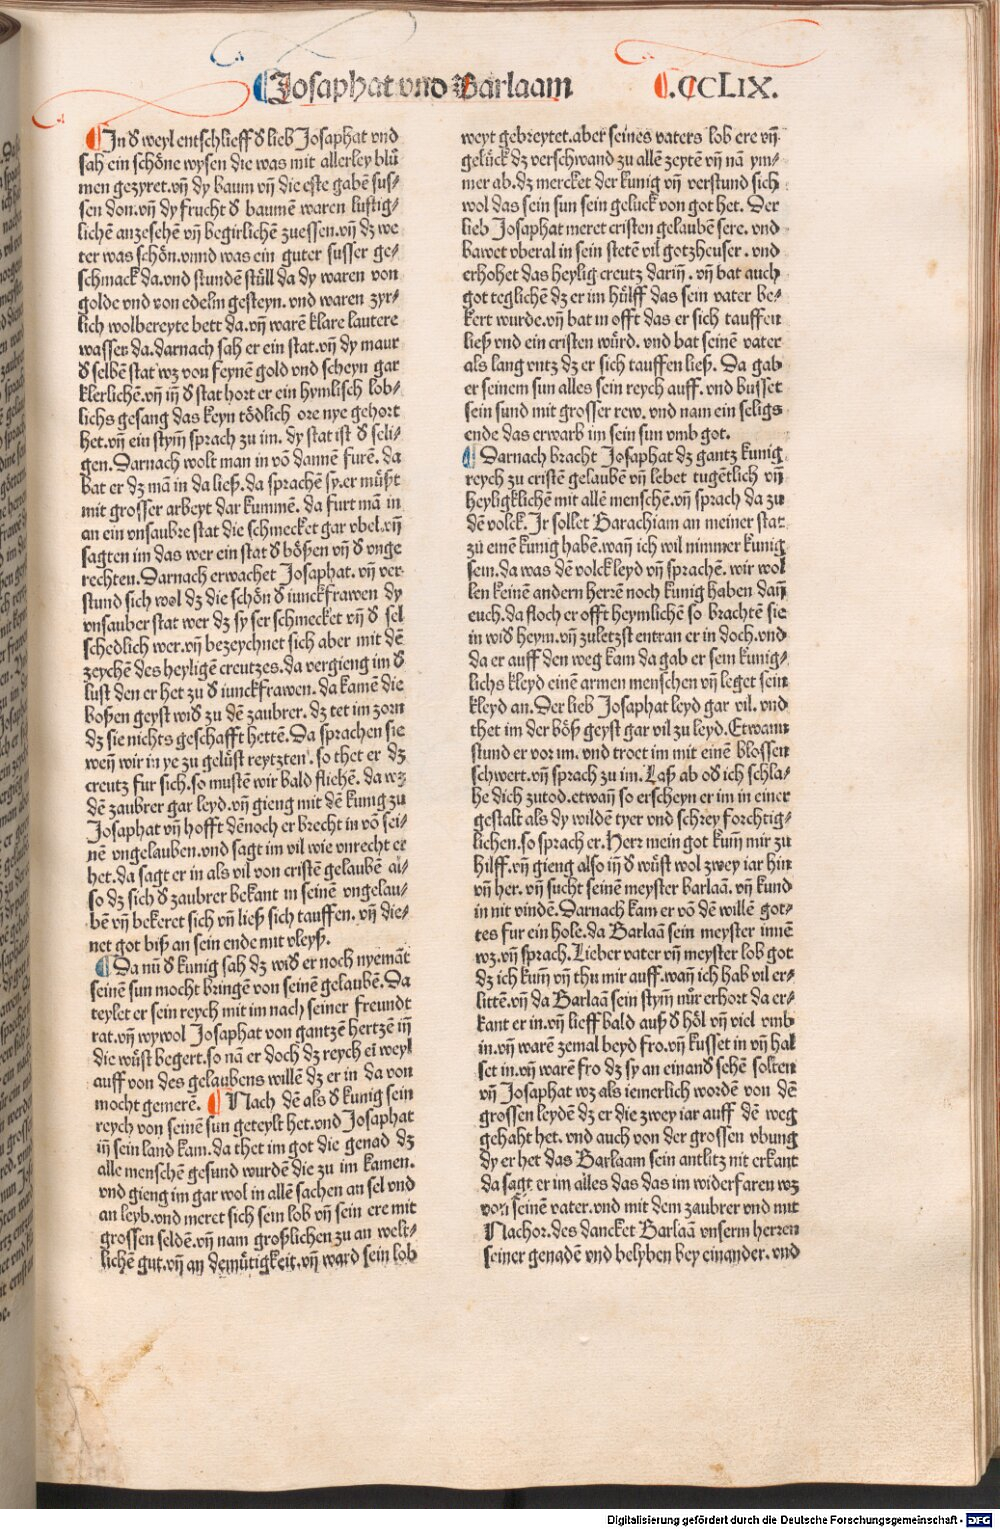 Josaphat vnd Barlaam
.CCLIX.
In d̕ weyl entschlieff d̕ lieb Josaphat vnd
sah ein schöne wysen die was mit allerley blů
men gezyret.vñ dy baum vñ die este gabē sus⸗
sen don.vñ dy frucht d̕ baumē waren lustig⸗
lichē anzesehē vñ begirlichē zuessen.vñ dz we
ter was schön.vnnd was ein guter susser ge⸗
schmack da.vnd stundē stüll da dy waren von
golde vnd von edelm gesteyn.vnd waren zyr⸗
lich wolbereyte bett da.vñ warē klare lautere
wasser da.darnach sah er ein stat.vñ dy maur
d̕ selbē stat wz von feynē gold vnd scheyn gar
klerlichē.vñ iñ d̕ stat hort er ein hymlisch lob⸗
lichs gesang das keyn tödlich ore nye gehort
het.vñ ein stym̄ sprach zu im. dy stat ist d̕ seli⸗
gen.Darnach wolt man in vō dannē furē. da
bat er dz mā in da ließ.da sprachē sy.er müßt
mit grosser arbeyt dar kummē. da furt mā in
an ein vnsaubre stat die schmecket gar vbel.vñ
sagten im das wer ein stat d̕ bößen vñ d̕ vnge
rechten.Darnach erwachet Josaphat. vñ ver⸗
stund sich wol dz die schön d̕ iunckfrawen dy
vnsauber stat wer dz sy ser schmecket vñ d̕ sel
schedlich wer.vñ bezeychnet sich aber mit dē
zeychē des heyligē creutzes.da vergieng im d̕
lust den er het zu d̕ iunckfrawen. da kamē die
boßen geyst wid̕ zu dē zaubrer. dz tet im zorn
dz sie nichts geschafft hettē.Da sprachen sie
weñ wir in ye zu gelüst reytzten. so thet er dz
creutz fur sich.so mustē wir bald fliehē. da wz
dē zaubrer gar leyd.vñ gieng mit dē kunig zu
Josaphat vñ hofft dēnoch er brecht in vō sei⸗
nē vngelauben.vnd sagt im vil wie vnrecht er
het.da sagt er in als vil von cristē gelaubē al⸗
so dz sich d̕ zaubrer bekant in seinē vngelau⸗
bē vñ bekeret sich vñ ließ sich tauffen. vñ die⸗
net got biß an sein ende mit vleyß.
Da nū d̕ kunig sah dz wid̕ er noch nyemāt
seinē sun mocht bringē von seinē gelaubē.Da
teylet er sein reych mit im nach seiner freundt
rat.vñ wywol Josaphat von gantzē hertzē iñ
die wüst begert.so nā er doch dz reych ei weyl
auff von des gelaubens willē dz er in da von
mocht gemerē. Nach dē als d̕ kunig sein
reych von seinē sun geteylt het.vnd Josaphat
iñ sein land kam.da thet im got die genad dz
alle menschē gesund wurdē die zu im kamen.
vnd gieng im gar wol in allē sachen an sel vnd
an leyb.vnd meret sich sein lob vñ sein ere mit
grossen seldē.vñ nam großlichen zu an welt⸗
lichē gut.vñ an demütigkeit.vñ ward sein lob
weyt gebreytet.aber seines vaters lob ere vñ
gelück dz verschwand zu allē zeytē vñ nā ym⸗
mer ab.dz mercket der kunig vñ verstund sich
wol das sein sun sein gelück von got het. Der
lieb Josaphat meret cristen gelaubē sere. vnd
bawet vberal in sein stetē vil gotzheuser. vnd
erhohet das heylig creutz dariñ. vñ bat auch
got teglichē dz er im hülff das sein vater be⸗
kert wurde.vñ bat in offt das er sich tauffen
ließ vnd ein cristen würd. vnd bat seinē vater
als lang vntz dz er sich tauffen ließ. Da gab
er seinem sun alles sein reych auff. vnd busset
sein sund mit grosser rew. vnd nam ein seligs
ende das erwarb im sein sun vmb got.
Darnach bracht Josaphat dz gantz kunig
reych zu cristē gelaubē vñ lebet tugētlich vñ
heyligklichē mit allē menschē.vñ sprach da zu
dē volck. Jr sollet Barachiam an meiner stat
zu einē kunig habē.wañ ich wil nimmer kunig
sein.da was dē volck leyd vñ sprachē. wir wol
len keinē andern herrē noch kunig haben dañ
euch.da floch er offt heymlichē so brachtē sie
in wid̕ heym.vñ zuletzst entran er in doch.vnd
da er auff den weg kam da gab er sein kunig⸗
lichs kleyd einē armen menschen vñ leget sein
kleyd an.Der lieb Josaphat leyd gar vil. vnd
thet im der böß geyst gar vil zu leyd.Etwann
stund er vor im. vnd troet im mit einē blossen
schwert.vñ sprach zu im. Laß ab od̕ ich schla⸗
he dich zutod.etwañ so erscheyn er im in einer
gestalt als dy wildē tyer vnd schrey forchtig⸗
lichen.so sprach er. Herr mein got kum̄ mir zu
hilff.vñ gieng also iñ d̕ wüst wol zwey iar hin
vñ her. vñ sucht seinē meyster barlaā. vñ kund
in nit vindē.Darnach kam er vō dē willē got⸗
tes fur ein hole.da Barlaā sein meyster innē
wz.vñ sprach.Lieber vater vñ meyster lob got
dz ich kum̄ vñ thu mir auff.wañ ich hab vil er⸗
littē.vñ da Barlaā sein stym̄ nůr erhort da er⸗
kant er in.vñ lieff bald auß d̕ höl vñ viel vmb
in.vñ warē zemal beyd fro.vñ kusset in vñ hal
set in.vñ warē fro dz sy an einand̕ sehē solten
vñ Josaphat wz als iemerlich wordē von dē
grossen leydē dz er die zwey iar auff dē weg
gehabt het. vnd auch von der grossen vbung
dy er het das Barlaam sein antlitz nit erkant
da sagt er im alles das das im widerfaren wz
von seinē vater.vnd mit dem zaubrer vnd mit
Nachor.des dancket Barlaā vnserm herren
seiner genadē vnd belyben bey einander. vnd
Digitalisierung gefördert durch die Deutsche Forschungsgemeinschaft - DFG